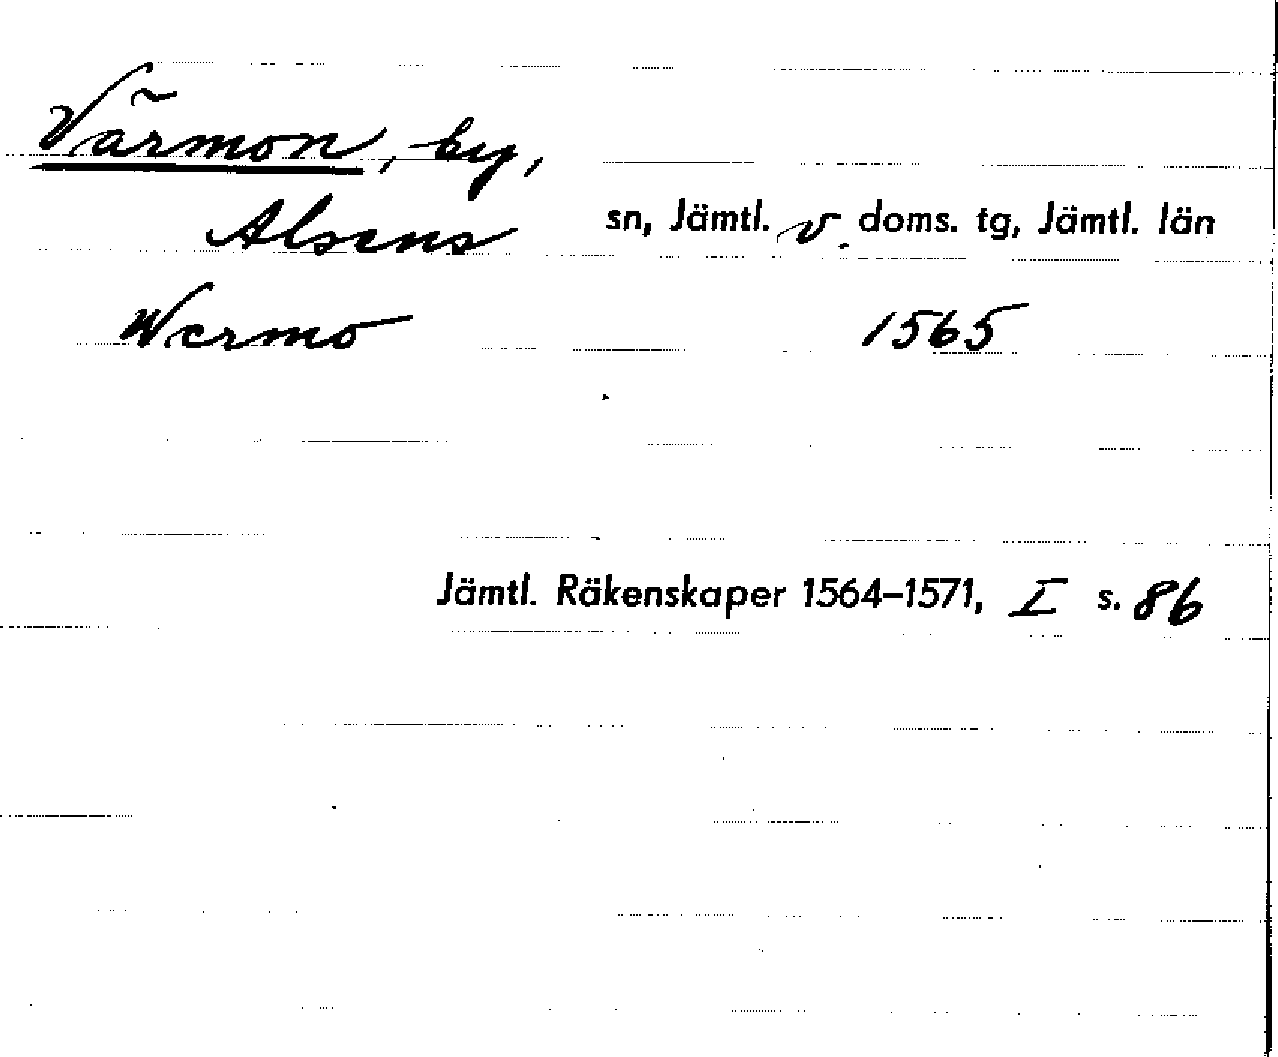 Värmon, by,
Alsens sn, Jämtl. v. doms. tg, Jämtl. län
Wermo 1565
Jämtl. Räkenskaper 1564–1571, I s. 86